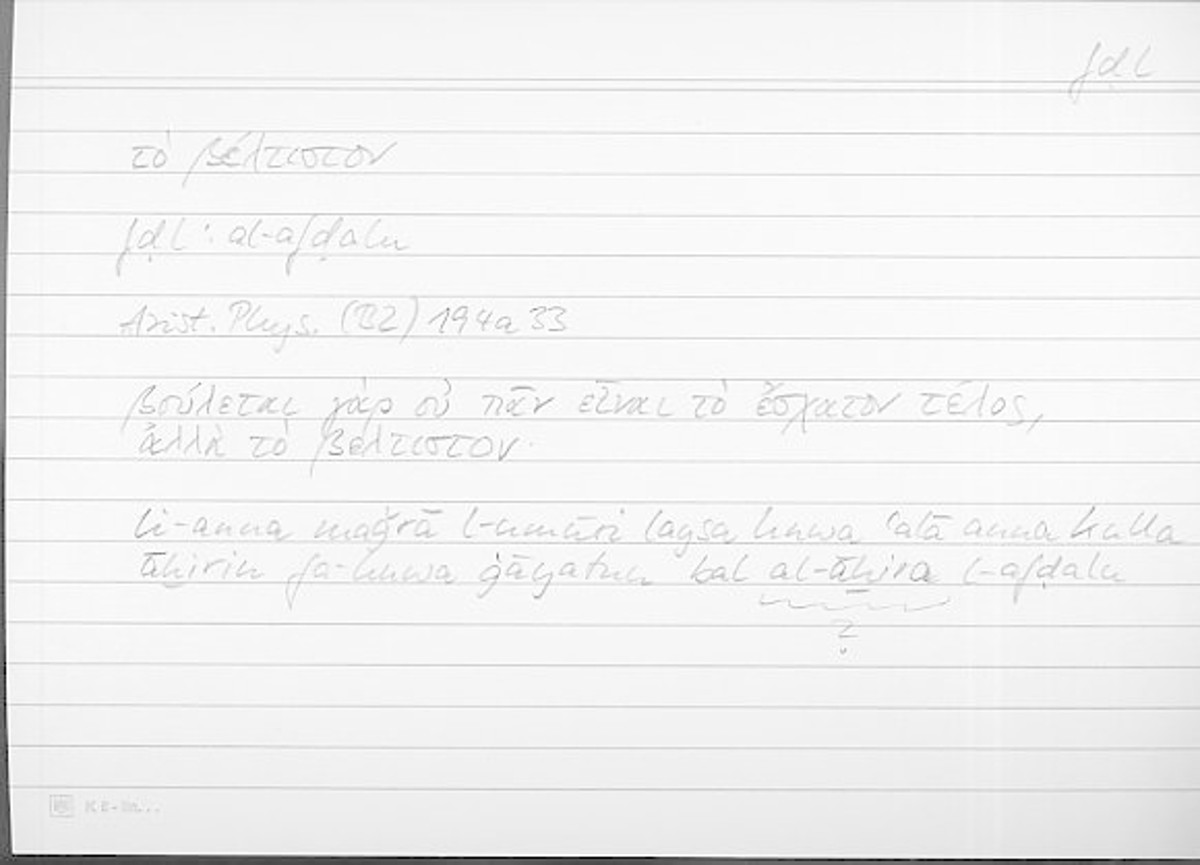 fḍl
τὸ βέλτιστον
fḍl : al-afḍalu
Arist. Phys. (B2) 194a33
βούλεται γὰρ οὐ πᾶν εἶναι τὸ ἔσχατον τέλος,
ἀλλὰ τὸ βέλτιστον·
li-anna maǧrā l-umūri laysa huwa ʿalā anna kulla
āḫirin fa-huwa ġāyatun bal al-āḫira l-afḍalu
?